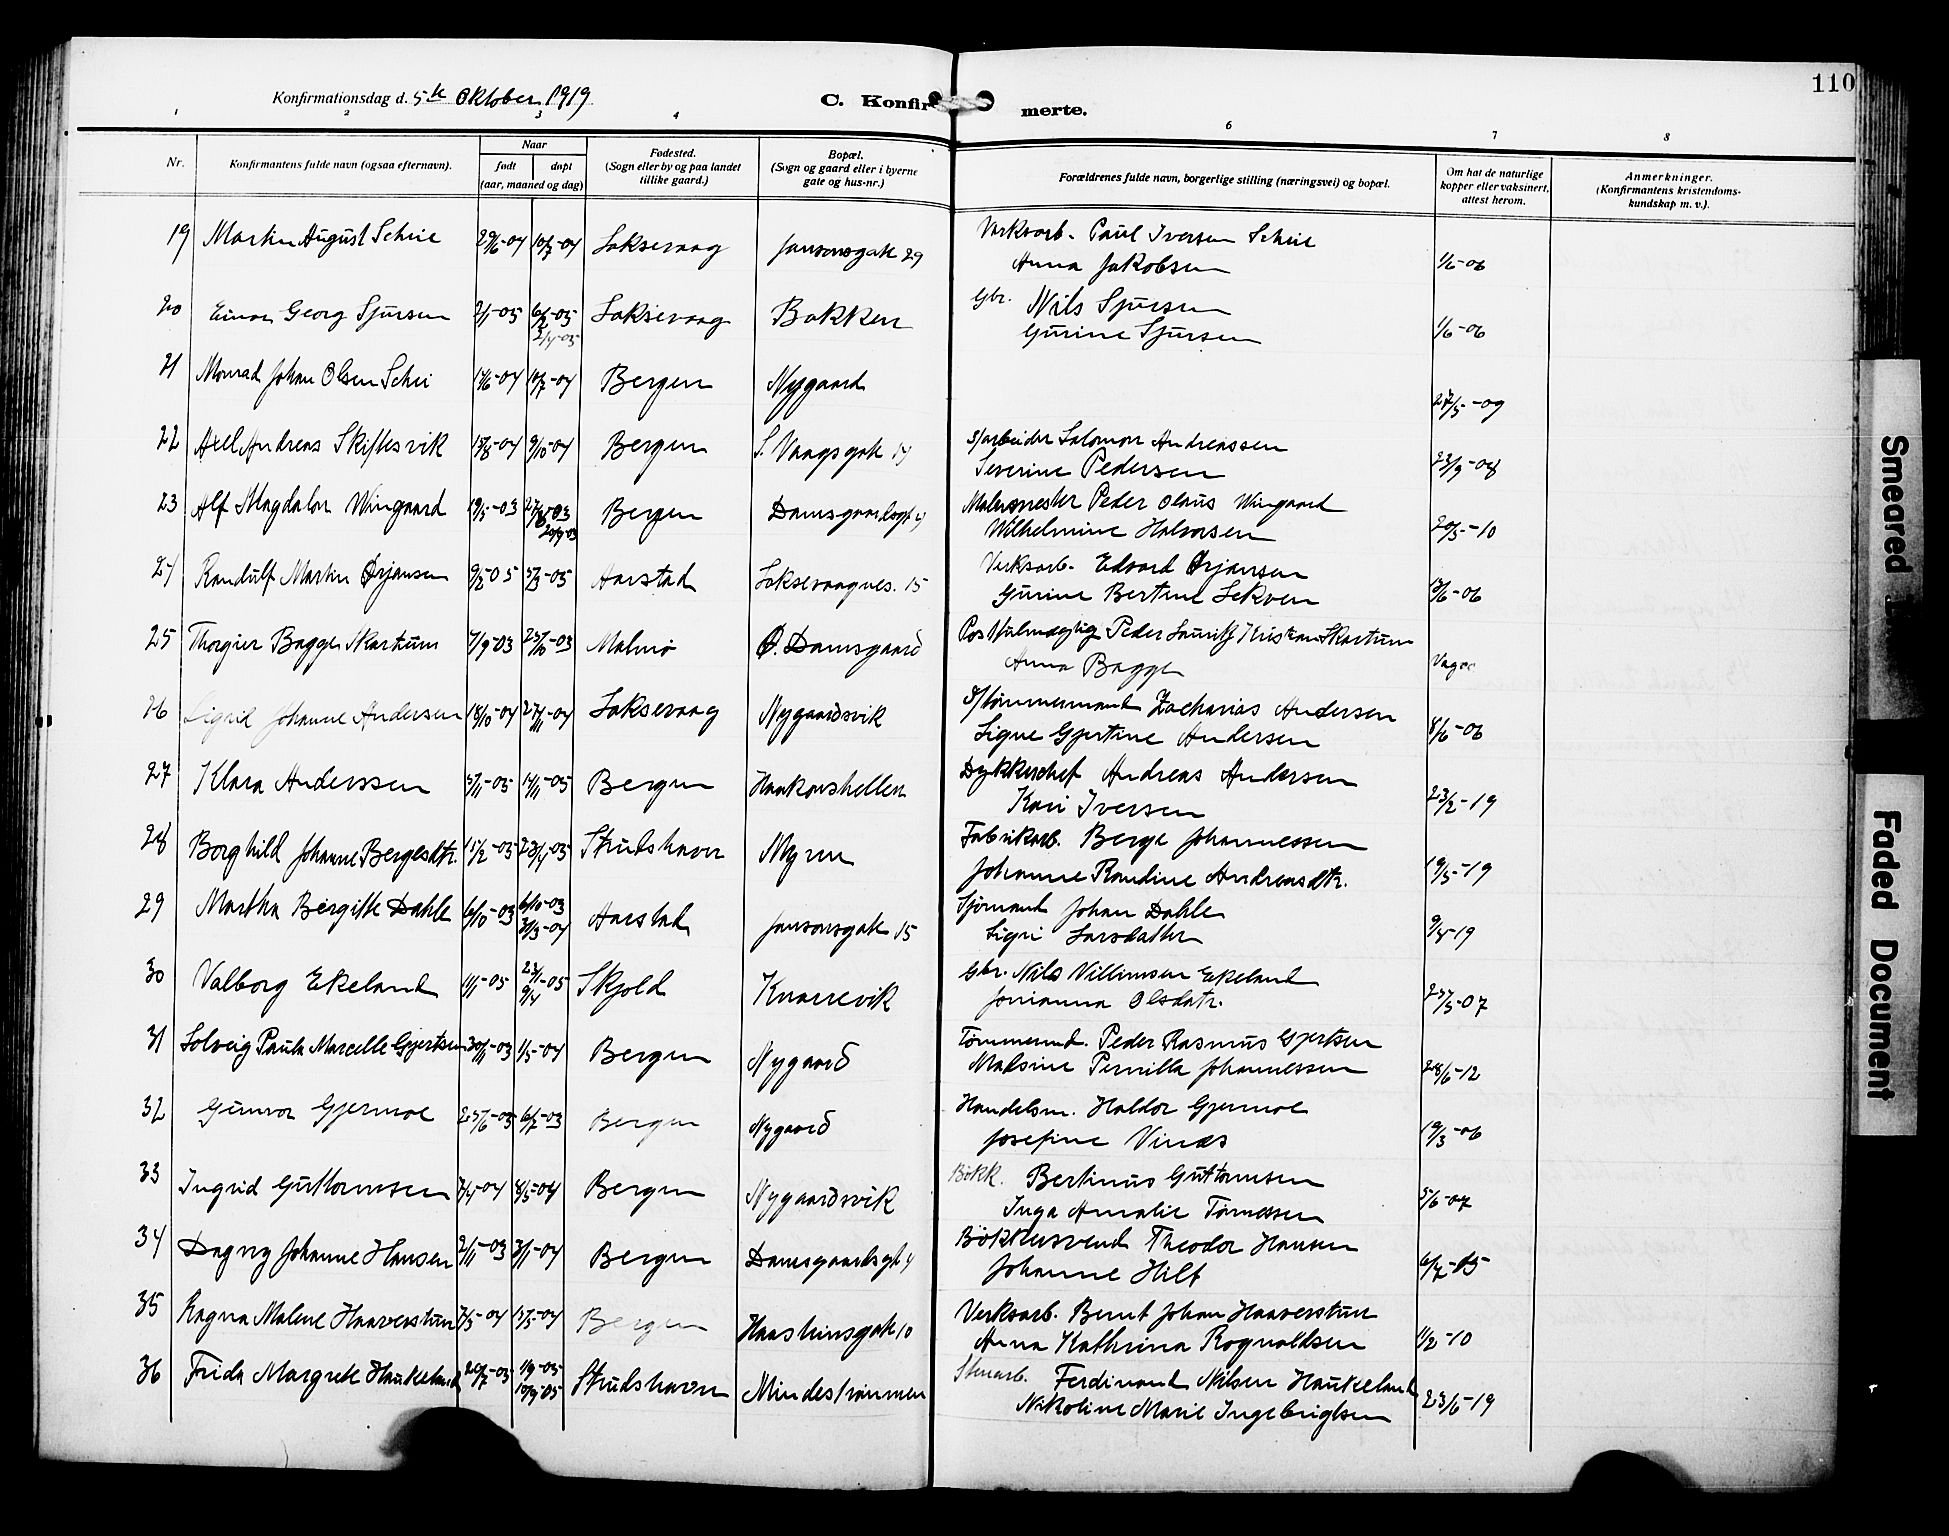 110
Konfirmationsdag d. 5te Oktober 1919
C. Konfir merte.
1 2 3 4 6 7 8
Nr.
Konfirmantens fulde navn (ogsaa efternavn).
Naar
født døpt
(aar, maaned og dag)
Fødested.
(Sogn eller by og paa landet
tillike gaard.)
Bopæl.
(Sogn og gaard eller i byerne
gate og hus-nr.)
Forældrenes fulde navn, borgerlige stilling (næringsvei) og bopæl.
Om hat de naturlige
kopper eller vaksinert,
attest herom.
Anmerkninger.
(Konfirmantens kristendoms-
kundskap m. v.).
19 Martin August Scheie 29/6-04 10/7-04 Laksevaag Jansonsgate 29 Verksarb. Paul Iversen Scheie
Anna Jakobsen 1/6-06
20 Einar Georg Sjursen 2/1-05 6/2-05 Laksevaag Bakken Gbr. Nils Sjursen
2/4-05 Gurine Sjursen 1/6-06
21 Monrad Johan Olsen Schei 10/7-04 Bergen Nygaard
27/5-09
22 Axel Andreas Skiftesvik 15/8-04 9/10-04 Bergen S. Vaagsgate 14 S/arbeider Salomon Andreassen
Severine Pedersen 23/9-08
23 Alf Magdalon Wingaard 19/5-03 Bergen Damsgaardsgt 4 Malermester Peder Olaus Wingaard
20/9 03 Wilhelmine Halvorsen 20/5-10
24 Randulf Martin Ørjansen 9/2-05 Aarstad Laksevaagnes. 15 Verksarb. Edvard Ørjansen
Gurine Bertine Lekven 13/6-06
25 Thorgier Bagge Skartum 7/9-03 25/10-03 Malmø Ø. Damsgaard Postfulmægtig Peder Lauritz Kristian Skartum
Anna Bagge
26 Sigrid Johanne Andersen 18/10-04 27/11-04 Laksevaag Nygaardsvik S/tømmermand Zacharias Andersen
Signe Gjertine Andersen 8/6-06
27 Klara Anderssen Bergen Haakonshellen Dykkerchef Andreas Andersen
Kari Iversen 23/2-19
28 Borghild Johanne Bergesdtr. 15/2-05 23/4-05 Strudshavn Myren Fabrikarb. Berge Johannessen
Johanne Randine Andreasdtr. 19/5-19
29 Martha Bergitte Dahle 6/10-03 6/10-03 Aarstad Jansonsgate 15 Sjømand Johan Dahle
30/3-04 Sigri Larsdatter 9/4-19
30 Valborg Ekeland 1/1-05 23/1-05 Skjold Knarrevik Gbr. Nils Villimsen Ekeland
9/4 Johanna Olsdatr. 27/5-07
31 Solveig Paula Marcelle Gjertsen 30/11-03 1/5-04 Bergen Nygaard Tømmermd. Peder Rasmus Gjertsen
Maksine Pernilla Johannessen 28/6-12
32 Gunvor Gjermoe 6/7-03 Bergen Nygaard Handelsm. Haldor Gjermoe
Josefine Vinæs 19/3-06
33 Ingrid Guttormsen 7/4-04 8/5-04 Bergen Nygaardsvik Bøkk. Bertinus Guttormsen
Inga Amalie Tønnessen 5/6-07
34 Dagny Johanne Hansen 2/11-03 3/1-04 Bergen Damsgaardsgt 4 Bøkkersvend Theodor Hansen
Johanne Hilt
35 Ragna Malene Haaverstun 7/3-04 Bergen 10 Verksarb. Bernt Johan Haaverstun
Anna Kathrina Rognaldsen 11/2-10
36 Frida Margrete Haukeland 20/7-05 1/9-05 Strudshavn Mindestrømmen Stenarb. Ferdinand Nilsen Haukeland
10/9 05 Nikoline Marie Ingebrigtsen 23/6-19
Smeared
Faded Document